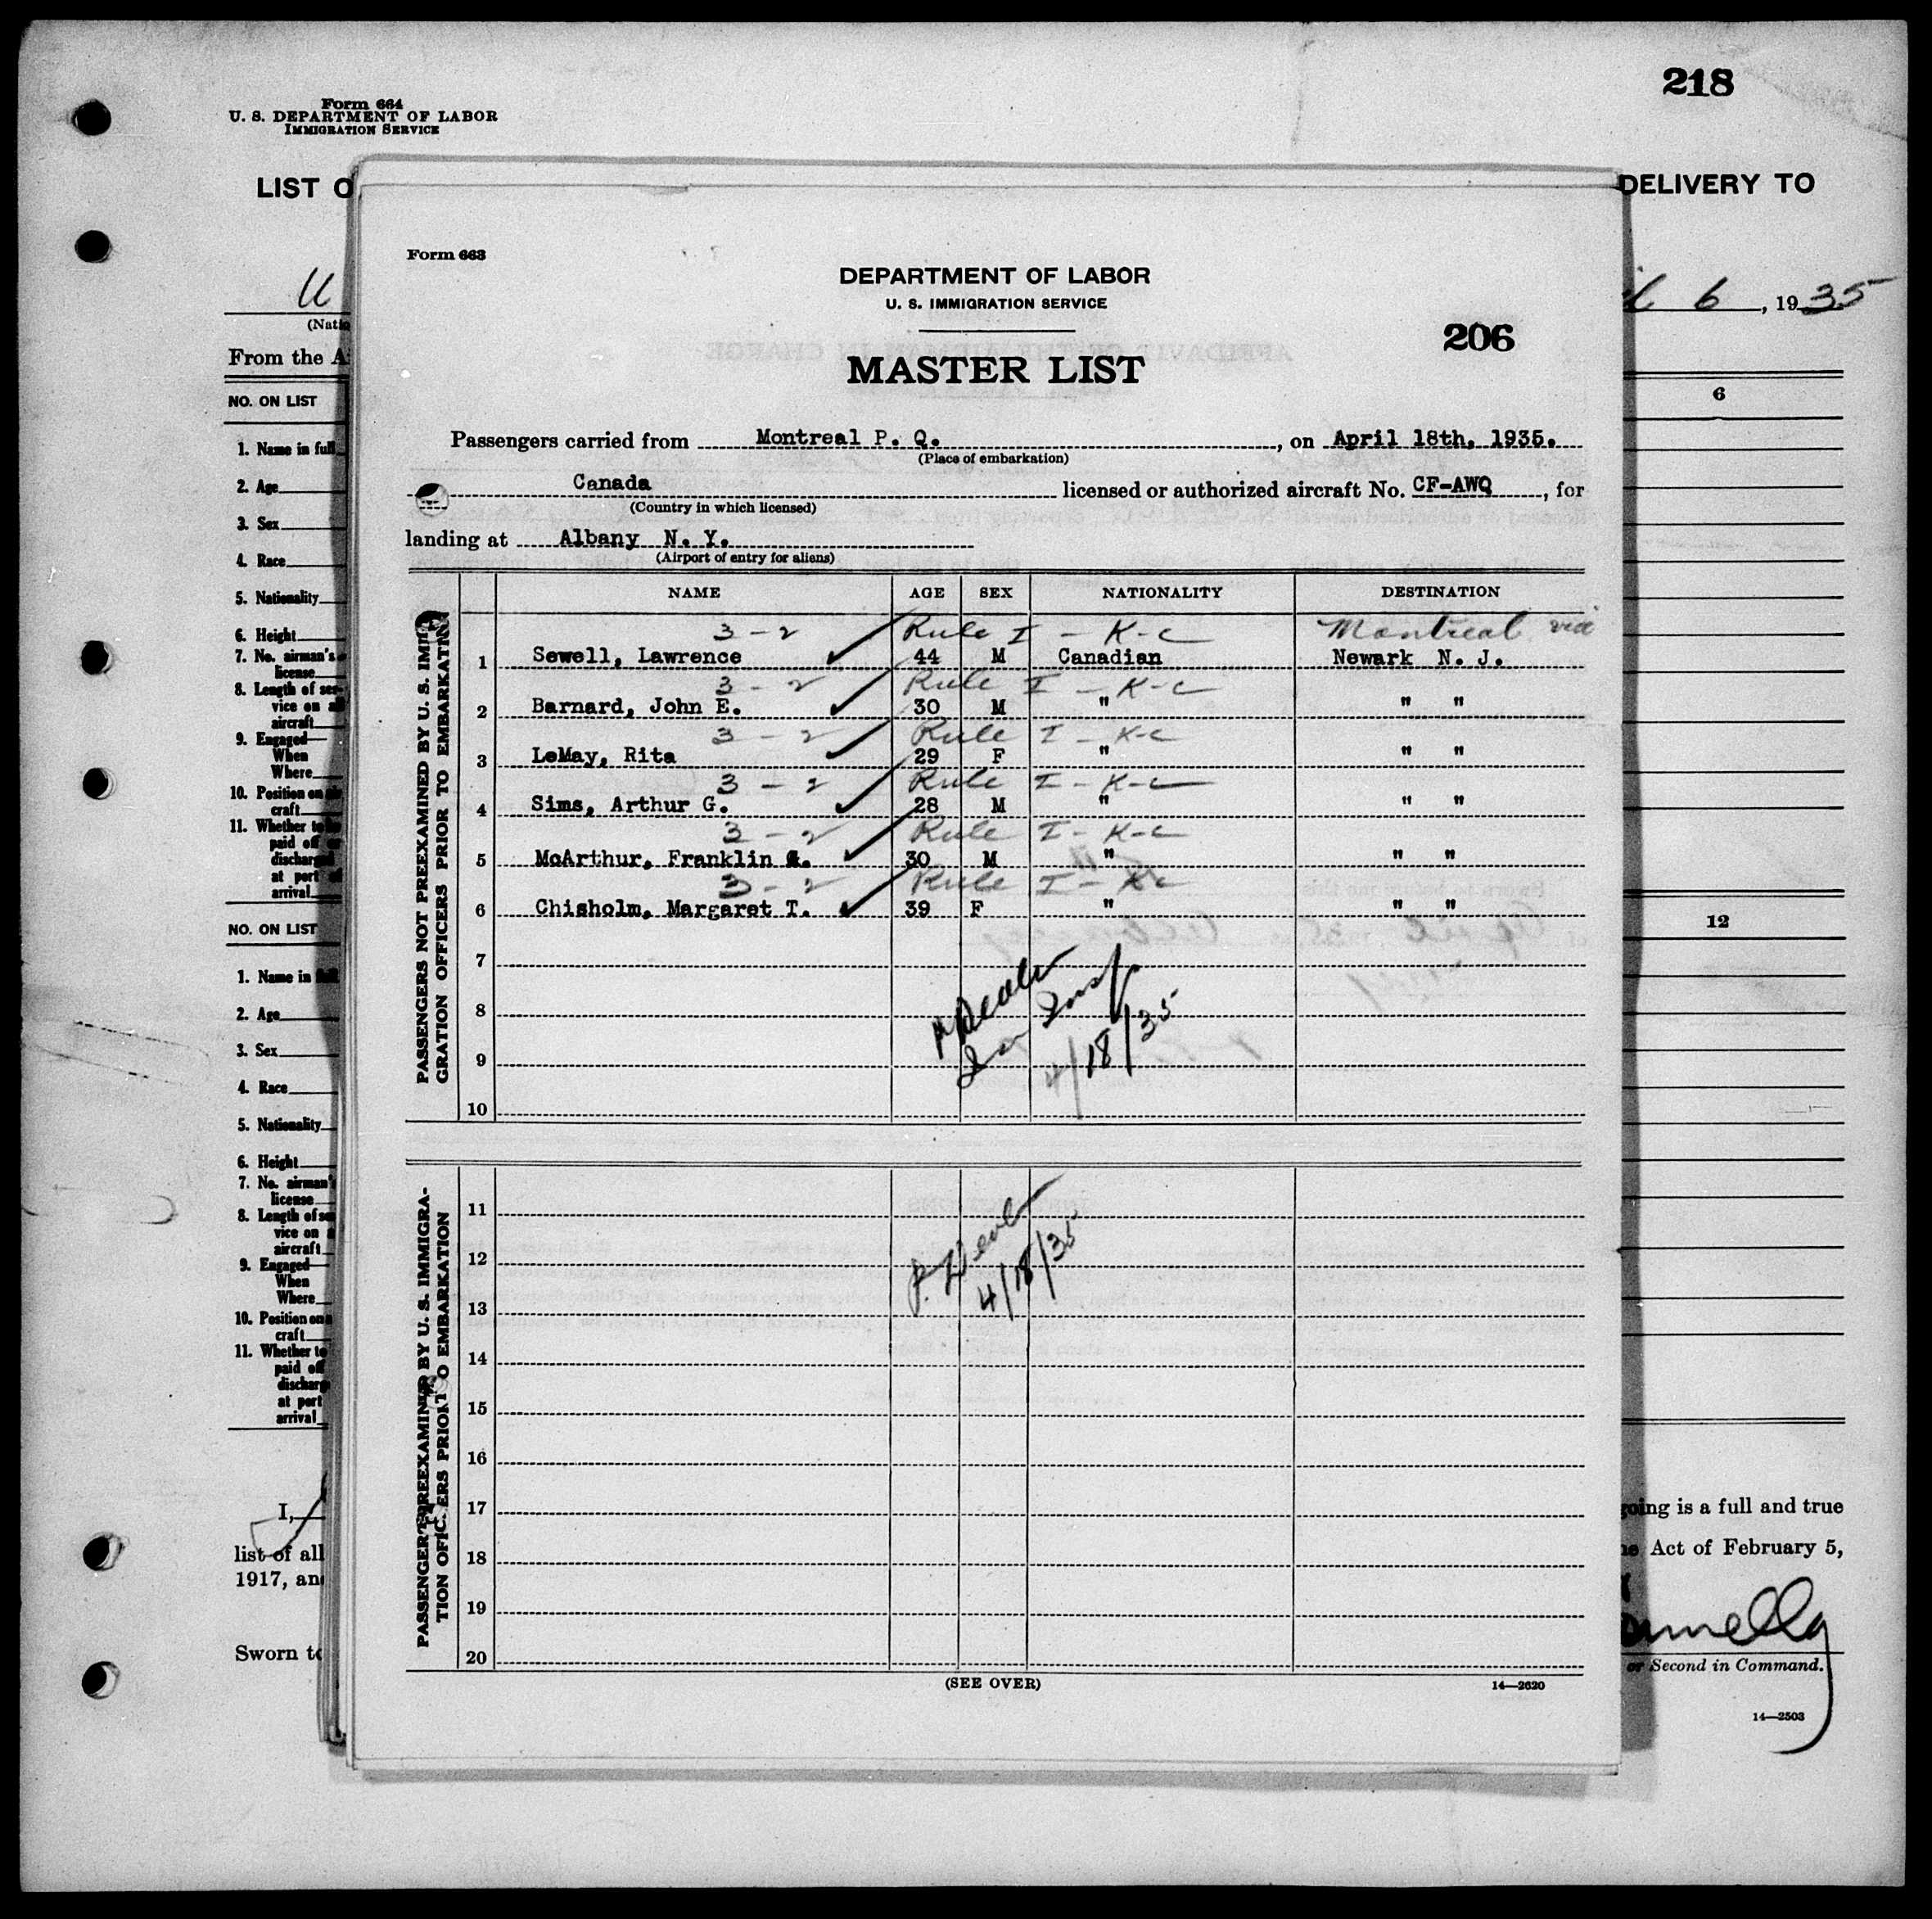 218
Form 664
U. S. DEPARTMENT OF LABOR
IMMIGRATION SERVICE
LIST O
DELIVERY TO
U
(Natio
6, 1935
From the A
NO. ON LIST
6
1. Name in full
2. Age
3. Sex
4. Race
5. Nationality
6. Height
7. No. airman's
license
8. Length of ser-
vice on a
aircraft
9. Engaged—
When
Where
10. Position on air
craft
11. Whether to be
paid off or
discharged
at port of
arrival
NO. ON LIST
12
1. Name in full
2. Age
3. Sex
4. Race
5. Nationality
6. Height
7. No. airman's
license
8. Length of ser
vice on a
aircraft
9. Engaged—
When
Where
10. Position on a
craft
11. Whether to
paid off
discharg
at port
arrival
I,
going is a full and true
list of all
he Act of February 5,
1917, and
Sworn to
or Second in Command.
14—2503
Form 663
DEPARTMENT OF LABOR
U. S. IMMIGRATION SERVICE
206
MASTER LIST
Passengers carried from Montreal P. Q., on April 18th, 1935.
(Place of embarkation)
Canada licensed or authorized aircraft No. CF-AWQ, for
(Country in which licensed)
landing at Albany N. Y.
(Airport of entry for aliens)
PASSENGERS NOT PREEXAMINED BY U. S. IMMI-
GRATION OFFICERS PRIOR TO EMBARKATION
NAME AGE SEX NATIONALITY DESTINATION
3-2 Rule I - K-c Montreal via
1 Sewell, Lawrence 44 M Canadian Newark N. J.
3-2 Rule I - K-c
2 Barnard, John E. 30 M " " "
3-2 Rule I - K-c
3 LeMay, Rita 29 F " " "
3-2 Rule I - K-c
4 Sims, Arthur G. 28 M " " "
3-2 Rule I - K-c
5 McArthur, Franklin G. 30 M " " "
3-2 Rule I - K-c
6 Chisholm, Margaret T. 39 F " " "
7
8
9
4/18/35
10
PASSENGERS PREEXAMINED BY U. S. IMMIGRA-
TION OFFICERS PRIOR TO EMBARKATION
11
12
4/18/35
13
14
15
16
17
18
19
20
(SEE OVER)
14—2620